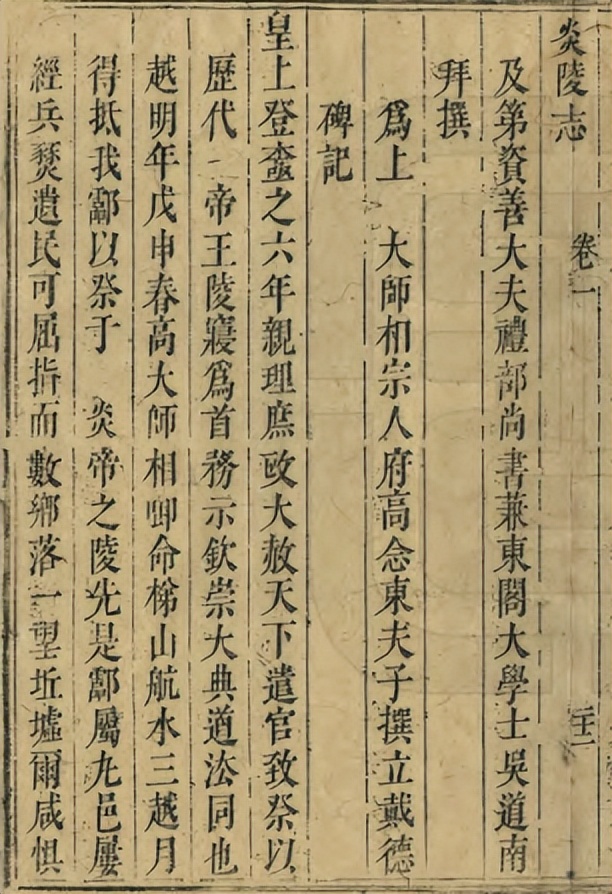 炎陵志　卷一　二十二
及第資善大夫禮部尚書兼東閣大學士吳道南
拜撰
爲上　大師相宗人府高念東夫子撰立戴德
碑記
皇上登㙜之六年親理庶政大赦天下遣官致祭以
歷代　帝王陵寢爲首務示欽崇大典道法同也
越明年戊申春高大師相啣命梯山航水三越月
得抵我酃以祭于　炎帝之陵先是酃屬九邑屢
經兵燹遺民可屈指而數鄉落一望坵墟爾咸惧